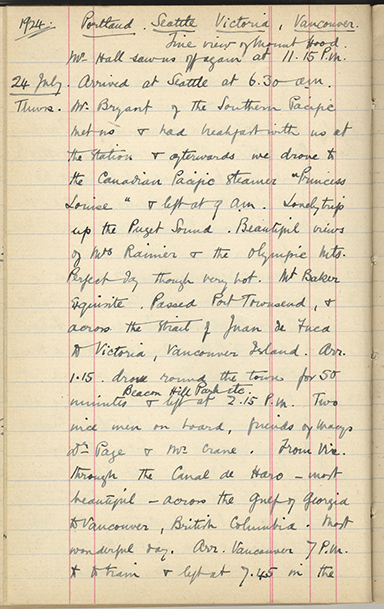 1924. Portland. Seattle Victoria, Vancouver.
Fine view of Mount Hood.
Mr. Hall saw us off again at 11.15 P.M.
24 July. Arrived at Seattle at 6.30 a.m.
Thurs. Mr. Bryant of the Southern Pacific
met us & had breakfast with us at
the station & afterwards we drove to
the Canadian Pacific Steamer "Princess
Louise" & left at 9 A.m. Lovely trip
up the Puget Sound. Beautiful views
of Mts Rainier & the Olympic Mts.
Perfect day though very hot. Mt Baker
exquisite. Passed Port Townsend, &
across the Strait of Juan de Fuca
to Victoria, Vancouver Island. Arr.
1.15. drove round the town for 50
Beacon Hill Park etc.
minutes & left at 2.15 P.M. Two
nice men on board, friends of Macys
Dr. Page & Mr. Crane. From Vic.
through the Canal de Haro - most
beautiful - across the Gulf of Georgia
to Vancouver, British Columbia. Most
wonderful day. Arr. Vancouver 7 P.M.
& to train & left at 7.45 in the